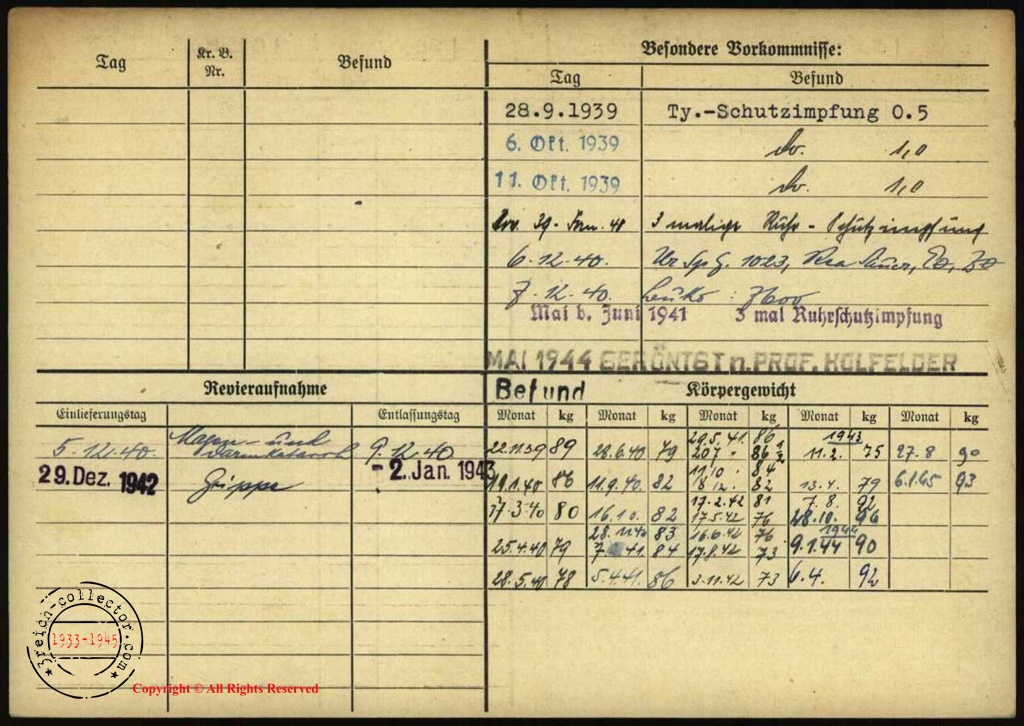 Besondere Vorkommnisse:
Tag Kr. B. Nr. Befund Tag Befund
28.9.1939 Ty.-Schutzimpfung 0.5
6. Okt. 1939 do. 1,0
11. Okt. 1939 do. 1,0
Nov. 39 - 40 3 malige Ruhr - Schutzimpfung
6.12.40. 1023,
7.12.40. Leuko: 7600
Mai b. Juni 1941 3 mal Ruhrschutzimpfung
MAI 1944 GERÖNTGT n. PROF. HOLFELDER
Befund
Revieraufnahme
Einlieferungstag Entlassungstag
5.12.40. Magen- und Darmkatarrh 9.12.40
29. Dez. 1942 Grippe - 2. Jan. 1943
Körpergewicht
Monat kg Monat kg Monat kg Monat kg Monat kg
22.11.39 89 28.6.40 79 29.5.41. 86 1943
207 86½ 11.2. 75 27.8 90
19.1.40 86 11.9.40. 82 11.10. 84
8.12. 82 13.4. 79 6.1.45 93
17.3.40 80 16.10. 82 17.2.42 81 7.8. 92
17.5.42 76 28.10. 96
25.4.40 79 28.11.40 83 16.6.42 76 1944
7. 41. 84 17.8.42 73 9.1.44 90
28.5.40 78 5.4.41. 86 3.11.42 73 6.4. 92
3reich-collector.com
1933-1945
Copyright © All Rights Reserved